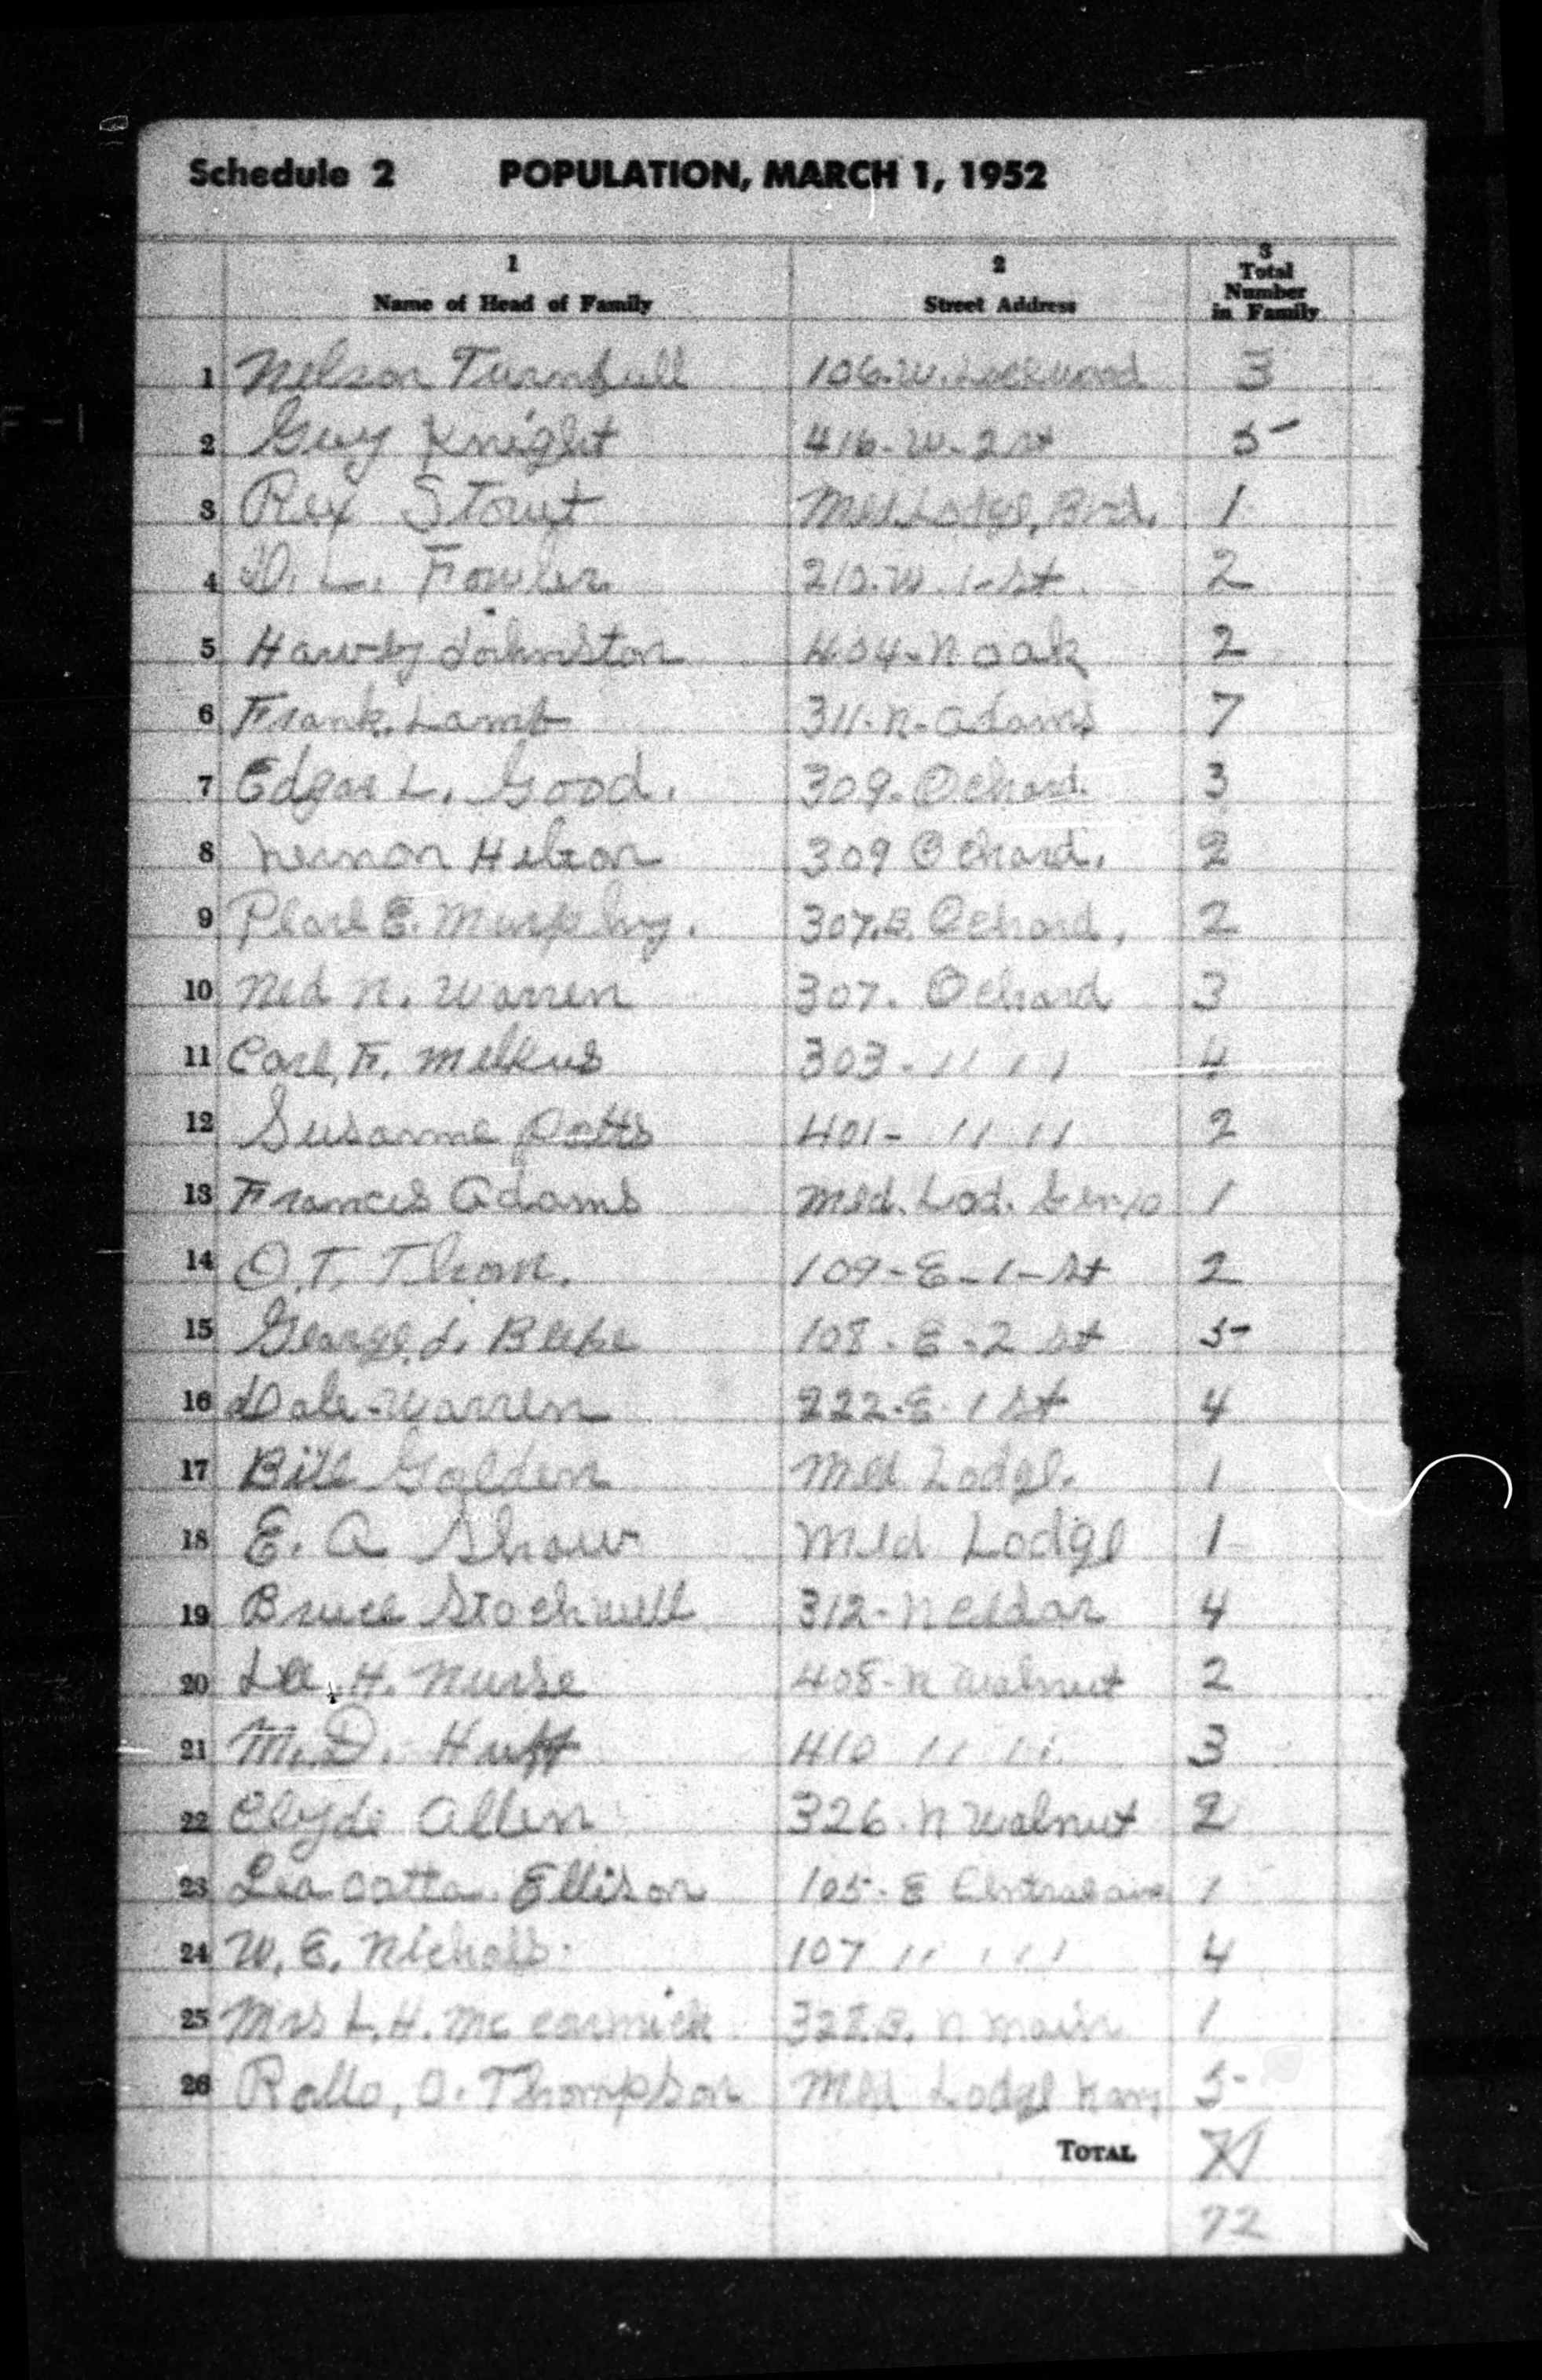 Schedule 2 POPULATION, MARCH 1, 1952
1 2 3
Name of Head of Family Street Address Total Number in Family
1 Nelson Turnbull 106. W. Lockwood 3
2 Guy Knight 416 - W - 2 st 5
3 Rex Stout Med. Lodge, 1
4 D. L. Fowler 210. W. 1 - St. 2
5 Harvey Johnston 404 - N oak 2
6 Frank. Lamb 311 - N - adams 7
7 Edgar L. Good. 309. Ochard. 3
8 Vernon Hilton 309 Ochard. 2
9 Pearl E. Murphy. 307. B. Ochard. 2
10 Ned N. Warren 307. Ochard 3
11 Carl, F. Melkus 303 - 11 11 4
12 Susanne Potts 401 - 11 11 2
13 Frances Adams Med. Lod. 1
14 O. T. Thon. 109 - E - 1 - St 2
15 George. L. 108 - E - 2 St 5
16 Dale - Warren 222 - E - 1 St 4
17 Bill Golden Med Lodge. 1
18 E. A Shaw Med Lodge 1
19 Bruce Stockwell 312 - N Cedar 4
20 Lee. H. Nurse 408 - N Walnut 2
21 M. D. Huff 410 11 11 3
22 Clyde Allen 326 - N Walnut 2
23 Ellison 105 - E Central ave 1
24 W. E. Nichols. 107 11 11 4
25 Mrs L. H. Mc cormick 322 B. N Main 1
26 Rollo, O. Thompson Med Lodge Kans 5
TOTAL 71
72